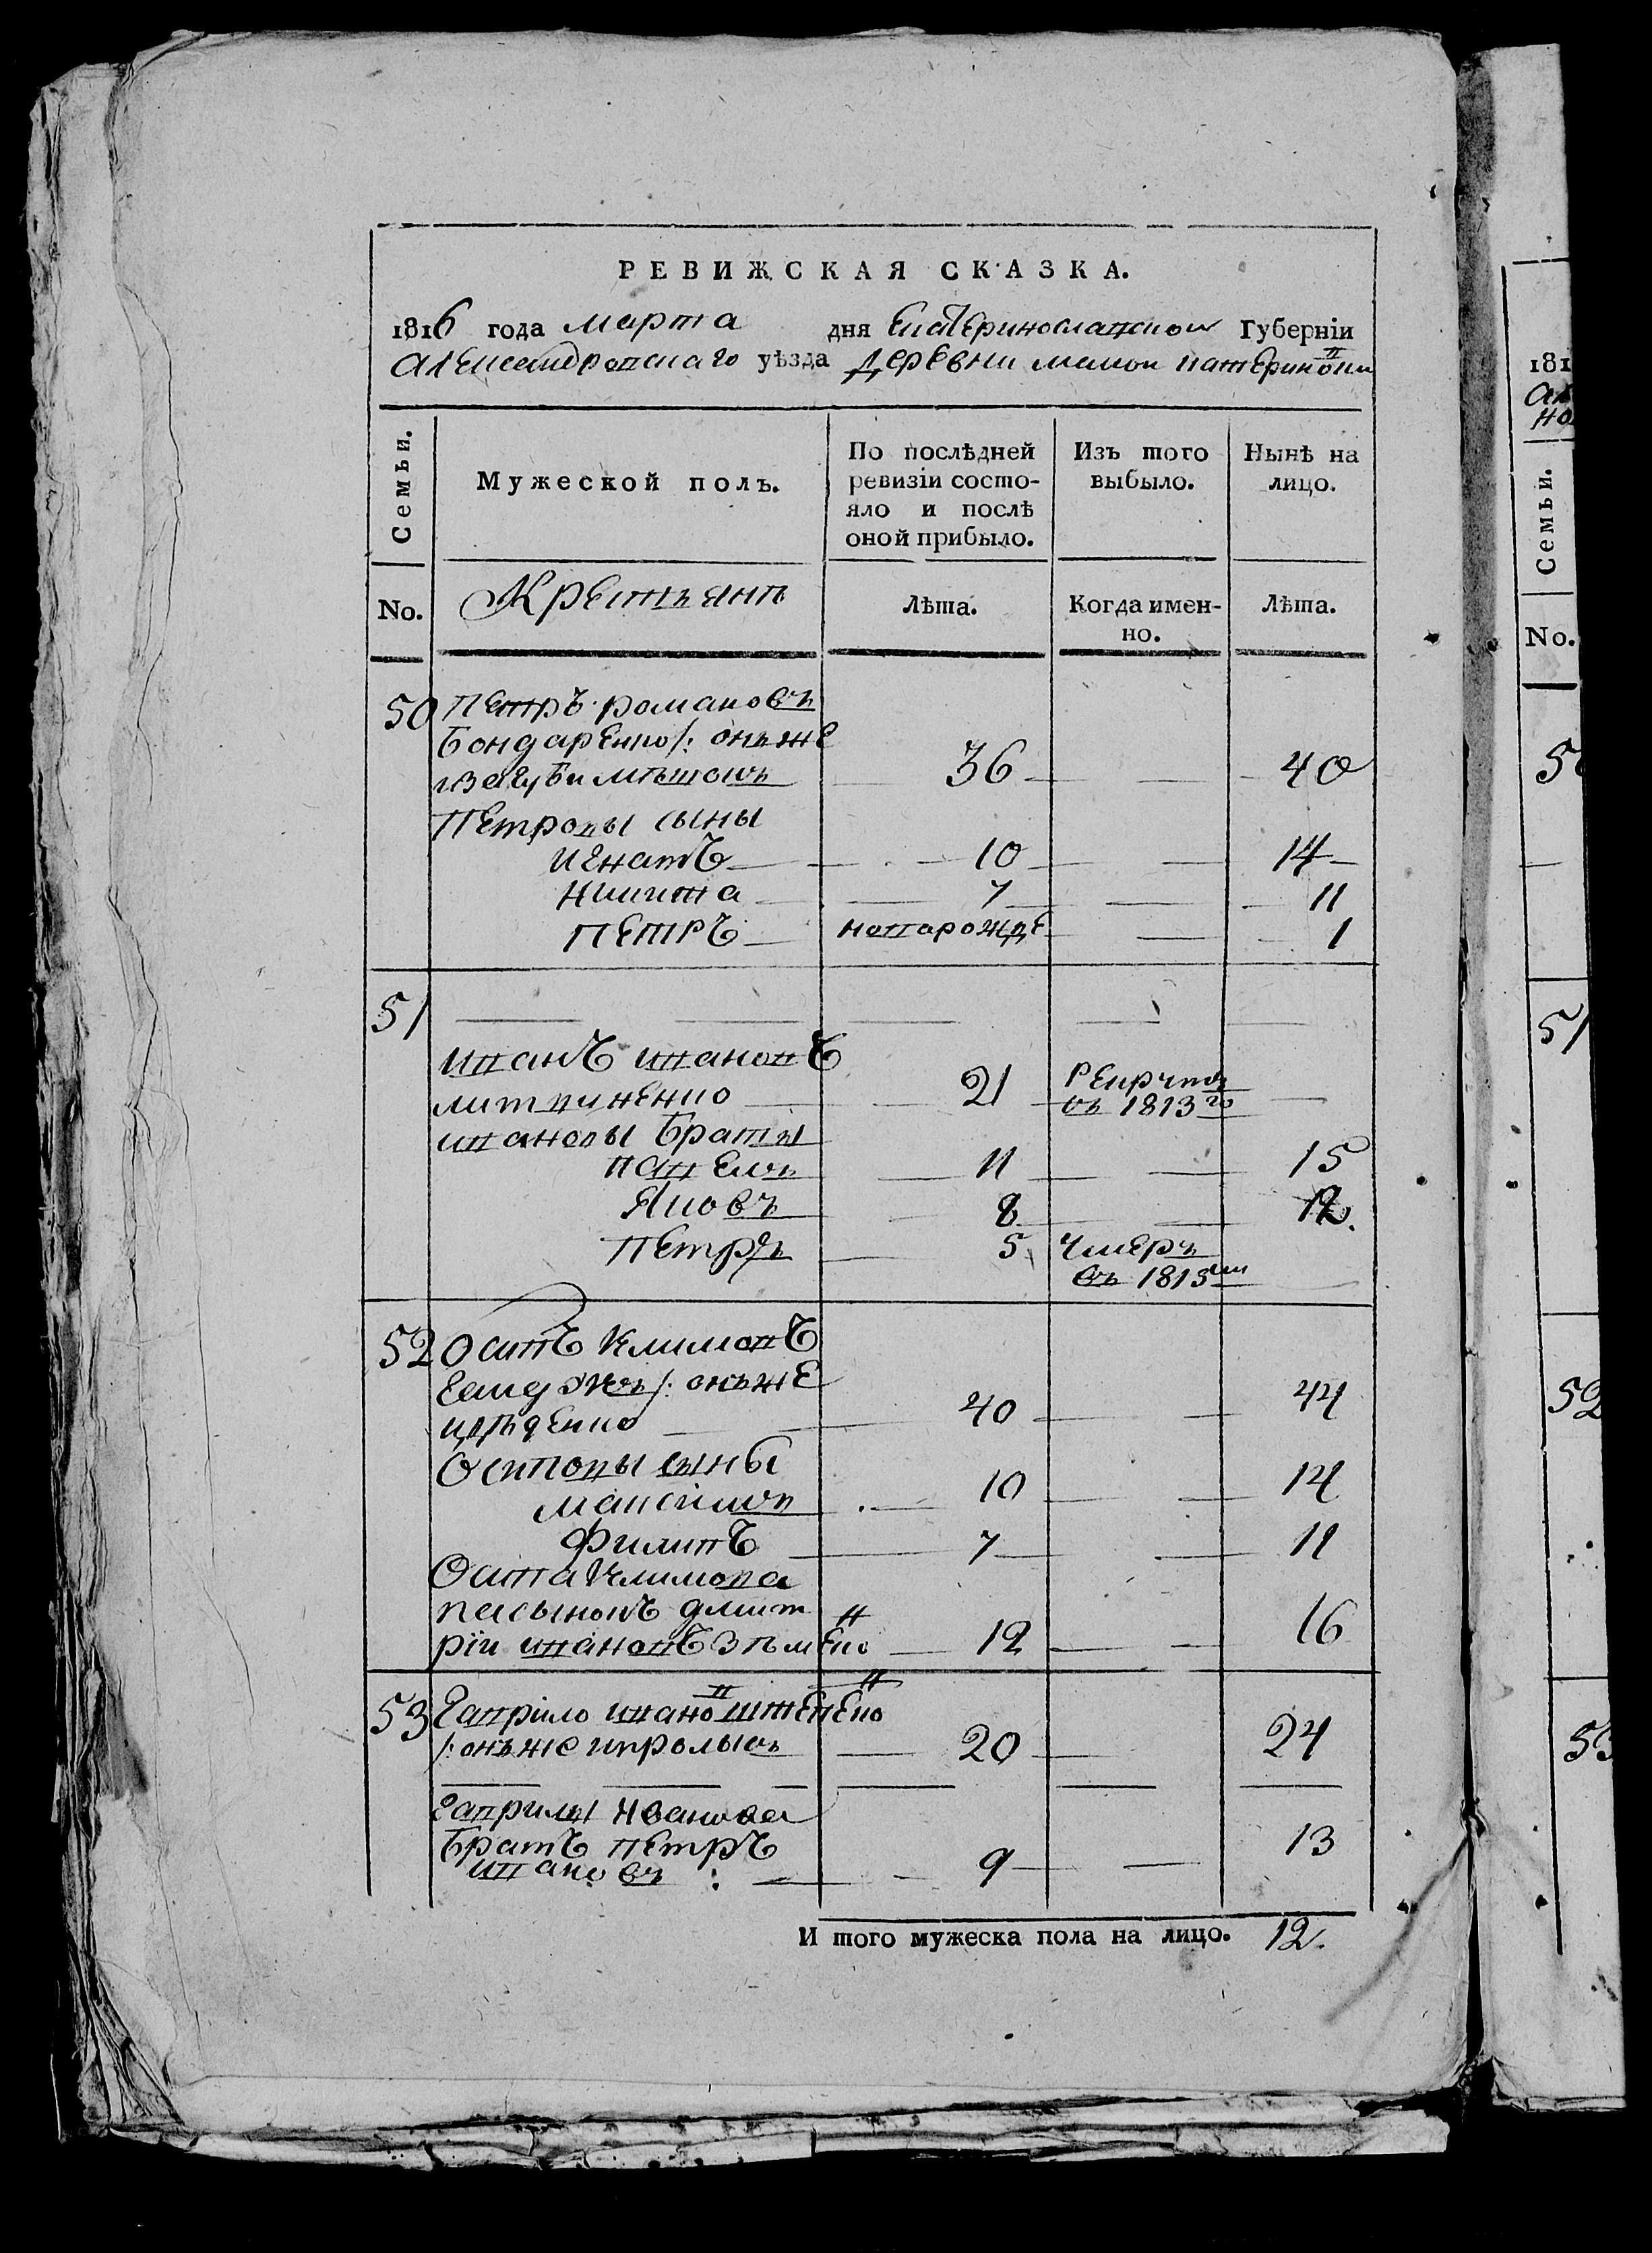 РЕВИЖСКАЯ СКАЗКА.
1816 года марта дня Екатеринославской Губерніи
Александровскаго уѣзда деревни малой катериновки
Семьи.
Мужеской полъ.
По послѣдней ревизіи состояло и послѣ оной прибыло.
Изъ того выбыло.
Нынѣ на лицо.
No.
Крестьянъ
Лѣта.
Когда именно.
Лѣта.
50 Петръ романовъ
бондаренко /: онъже
36 40
Петровы сыны
игнатъ 10 14
никита 7 11
Петръ новорожде 1
51
иванъ ивановъ
литвиненко 21 рекрутъ
въ 1813го
ивановы братья
павелъ 11 15
Яковъ 8 12.
Петръ 5 умеръ
въ 1815м
52 осипъ климовъ
гайдукъ /: онъже
40 44
осиповы сыны
максимъ 10 14
филипъ 7 11
Осипа климова
пасынокъ дмит
рій ивановъ 12 16
53 гаврило ивано
/: онъже 20 24
гаврилы Иванова
братъ петръ
ивановъ : 9 13
И того мужеска пола на лицо. 12.
181
Семьи.
No.
5
51
52
53